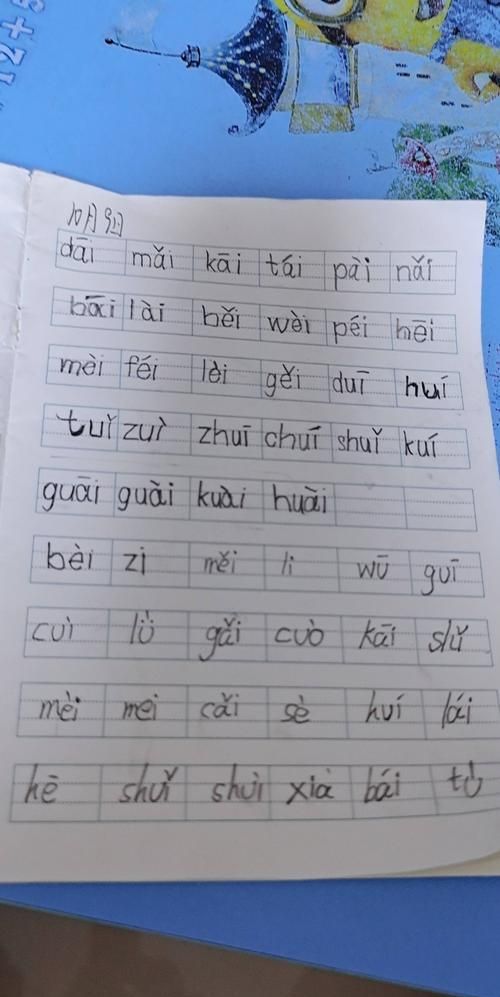 12+5
dāi mǎi kāi tái pài nǎi
bāi lài běi wèi péi hēi
mèi féi lèi gěi duī huí
tuǐ zuì zhuī chuí shuǐ kuí
guāi guài kuài huài
bèi zi měi lì wū guī
cuì lǜ gǎi cuò kāi shǐ
mèi mei cǎi sè huí lái
hē shuǐ shùi xià bái tù